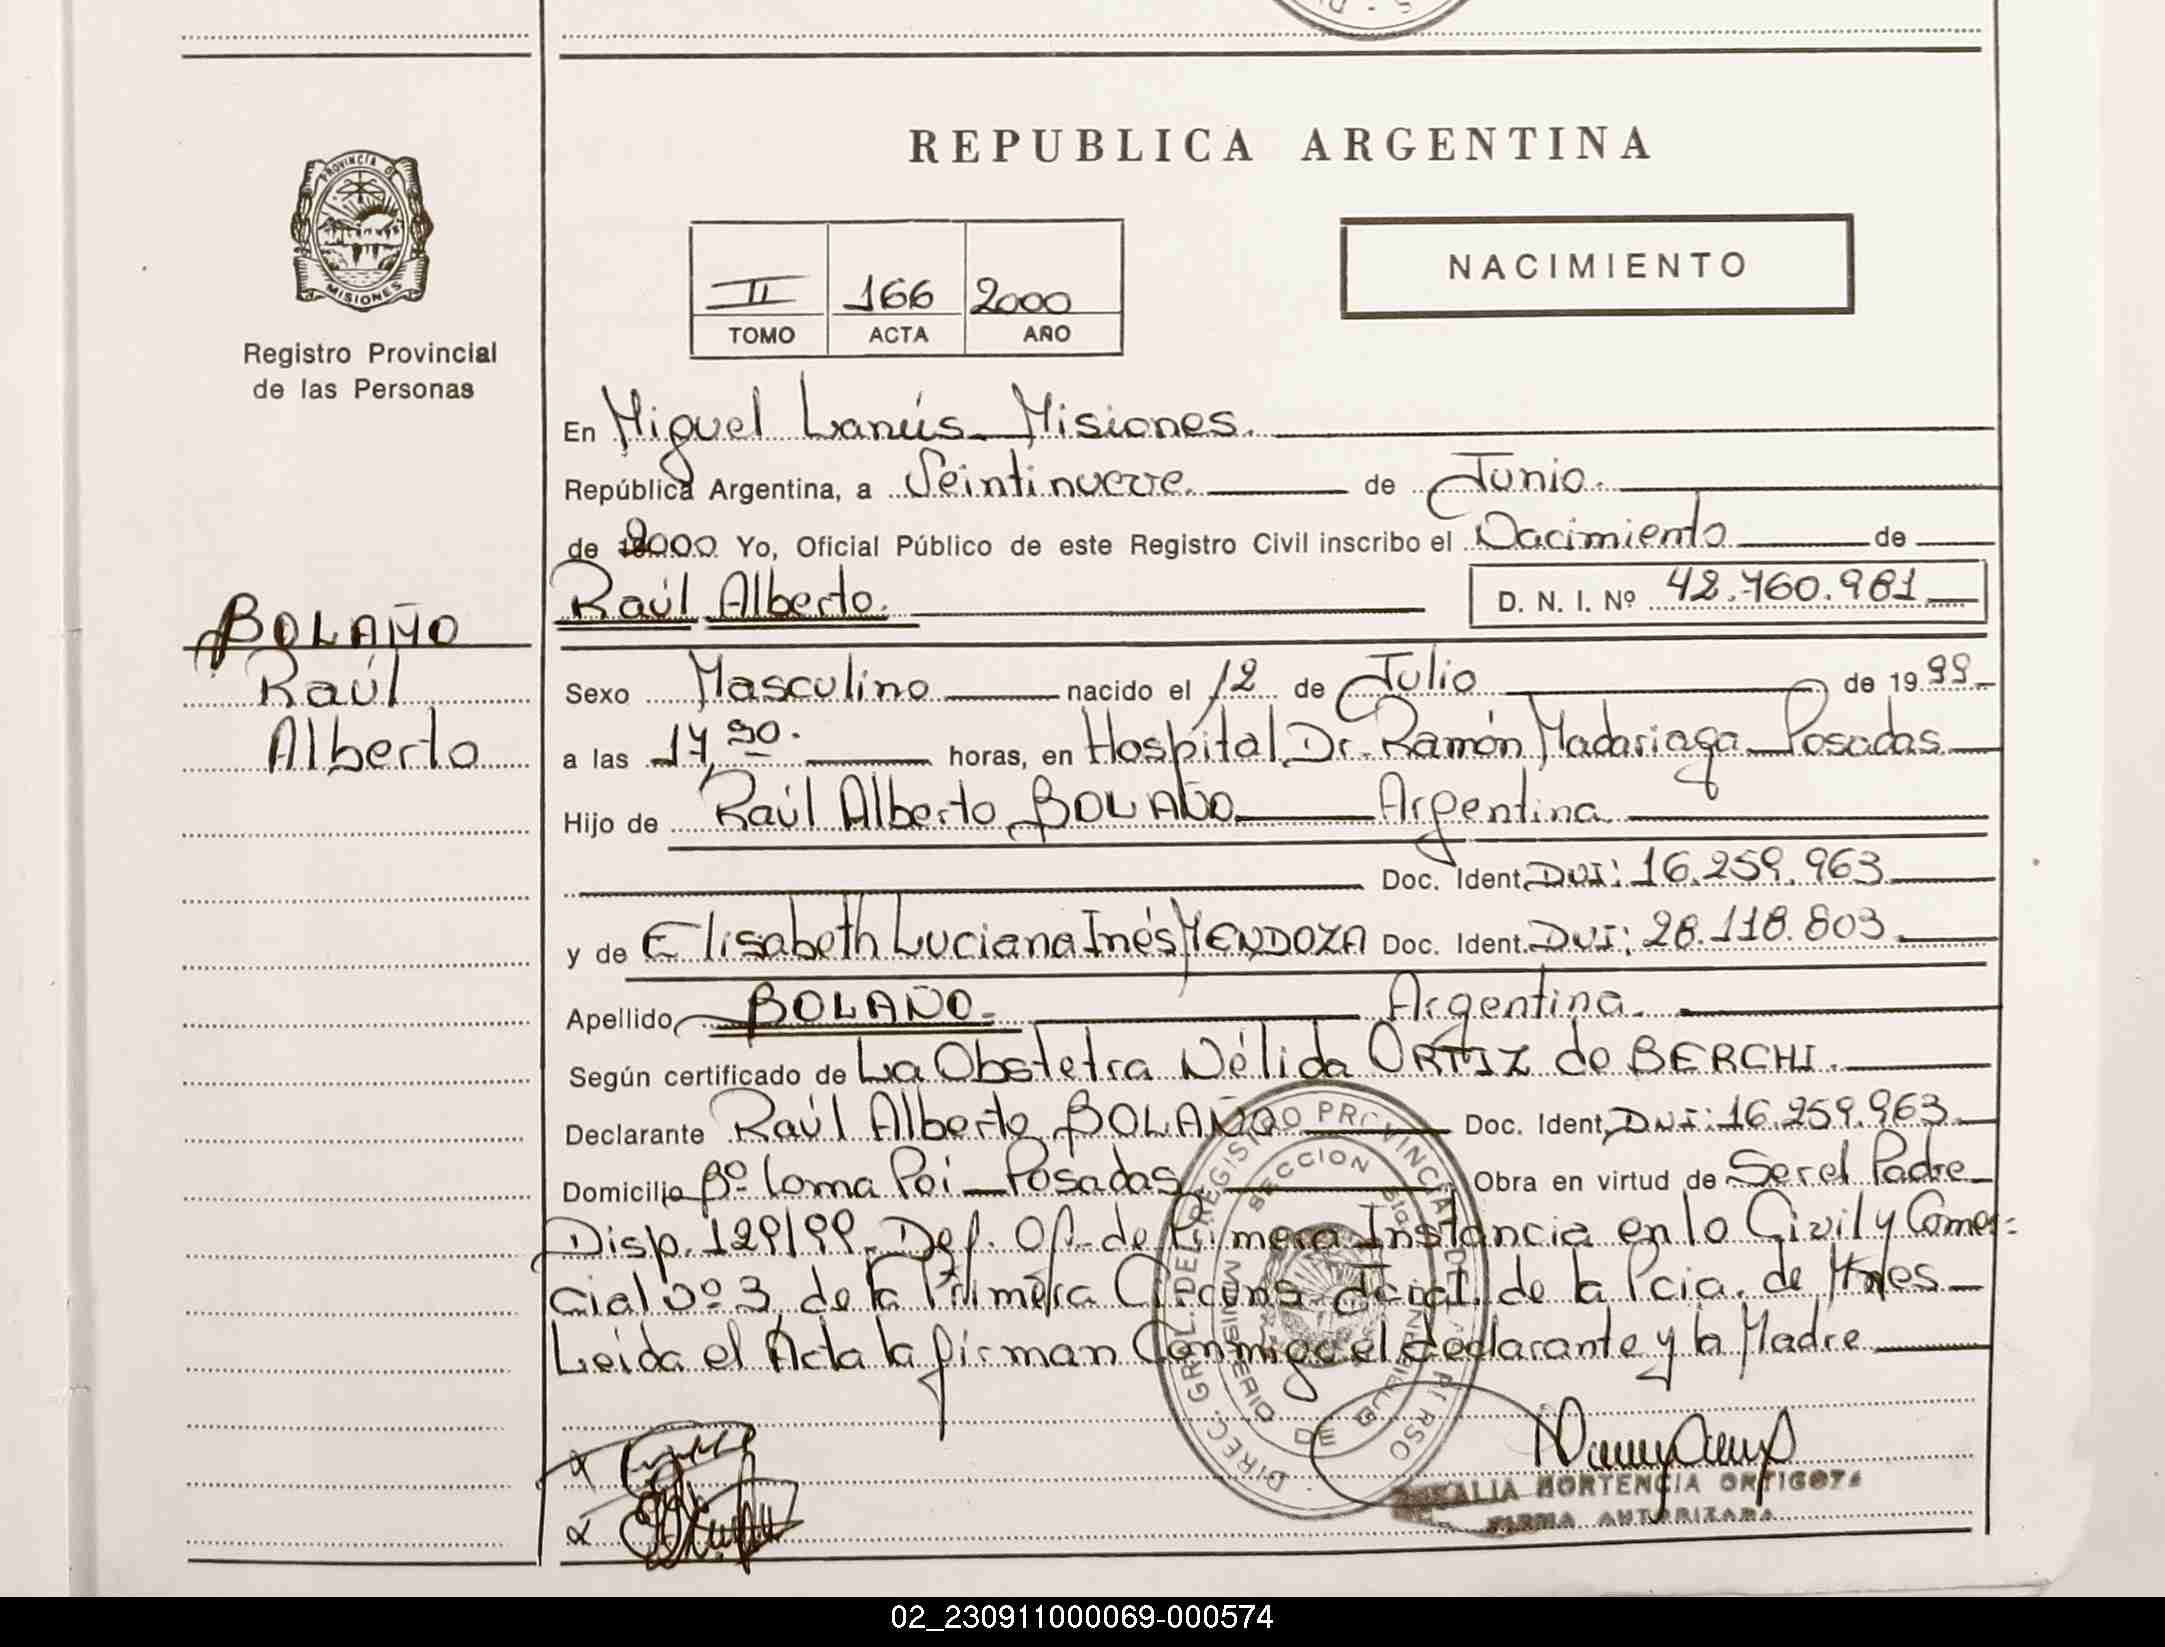 REPUBLICA ARGENTINA
PROVINCIA DE
MISIONES
Registro Provincial
de las Personas
II 166 2000
TOMO ACTA AÑO
NACIMIENTO
En Miguel Lanús - Misiones.
República Argentina, a Veintinueve. de Junio.
de 2000 Yo, Oficial Público de este Registro Civil inscribo el Nacimiento de
Raúl Alberto. D. N. I. Nº 42.760.981
BOLAÑO
Raúl
Alberto
Sexo Masculino nacido el 12 de Julio de 1999
a las horas, en Hospital Dr. Ramón Madariaga - Posadas
Hijo de Raúl Alberto BOLAÑO Argentina
Doc. Ident. DNI: 16.259.963
y de Elisabeth Luciana Inés MENDOZA Doc. Ident. DNI: 28.118.803
Apellido BOLAÑO. Argentina.
Según certificado de La Obstetra Nélida ORTIZ de BERCHI.
Declarante Raúl Alberto BOLAÑO Doc. Ident. DNI: 16.259.963
Domicilio Bº Loma Poi - Posadas Obra en virtud de Ser el Padre
Disp. 129/99 - Def. Of. de Primera Instancia en lo Civil y Comer=
cial Nº 3 de la Primera Circuns. Jcial. de la Pcia. de Mnes
Leida el Acta la firman Conmigo el declarante y la Madre
DIREC. GRAL. DEL REGISTRO PROVINCIAL DE
SECCION
MINISTERIO DE
HORTENCIA ORTIGOZA
FIRMA AUTORIZADA
02_230911000069-000574